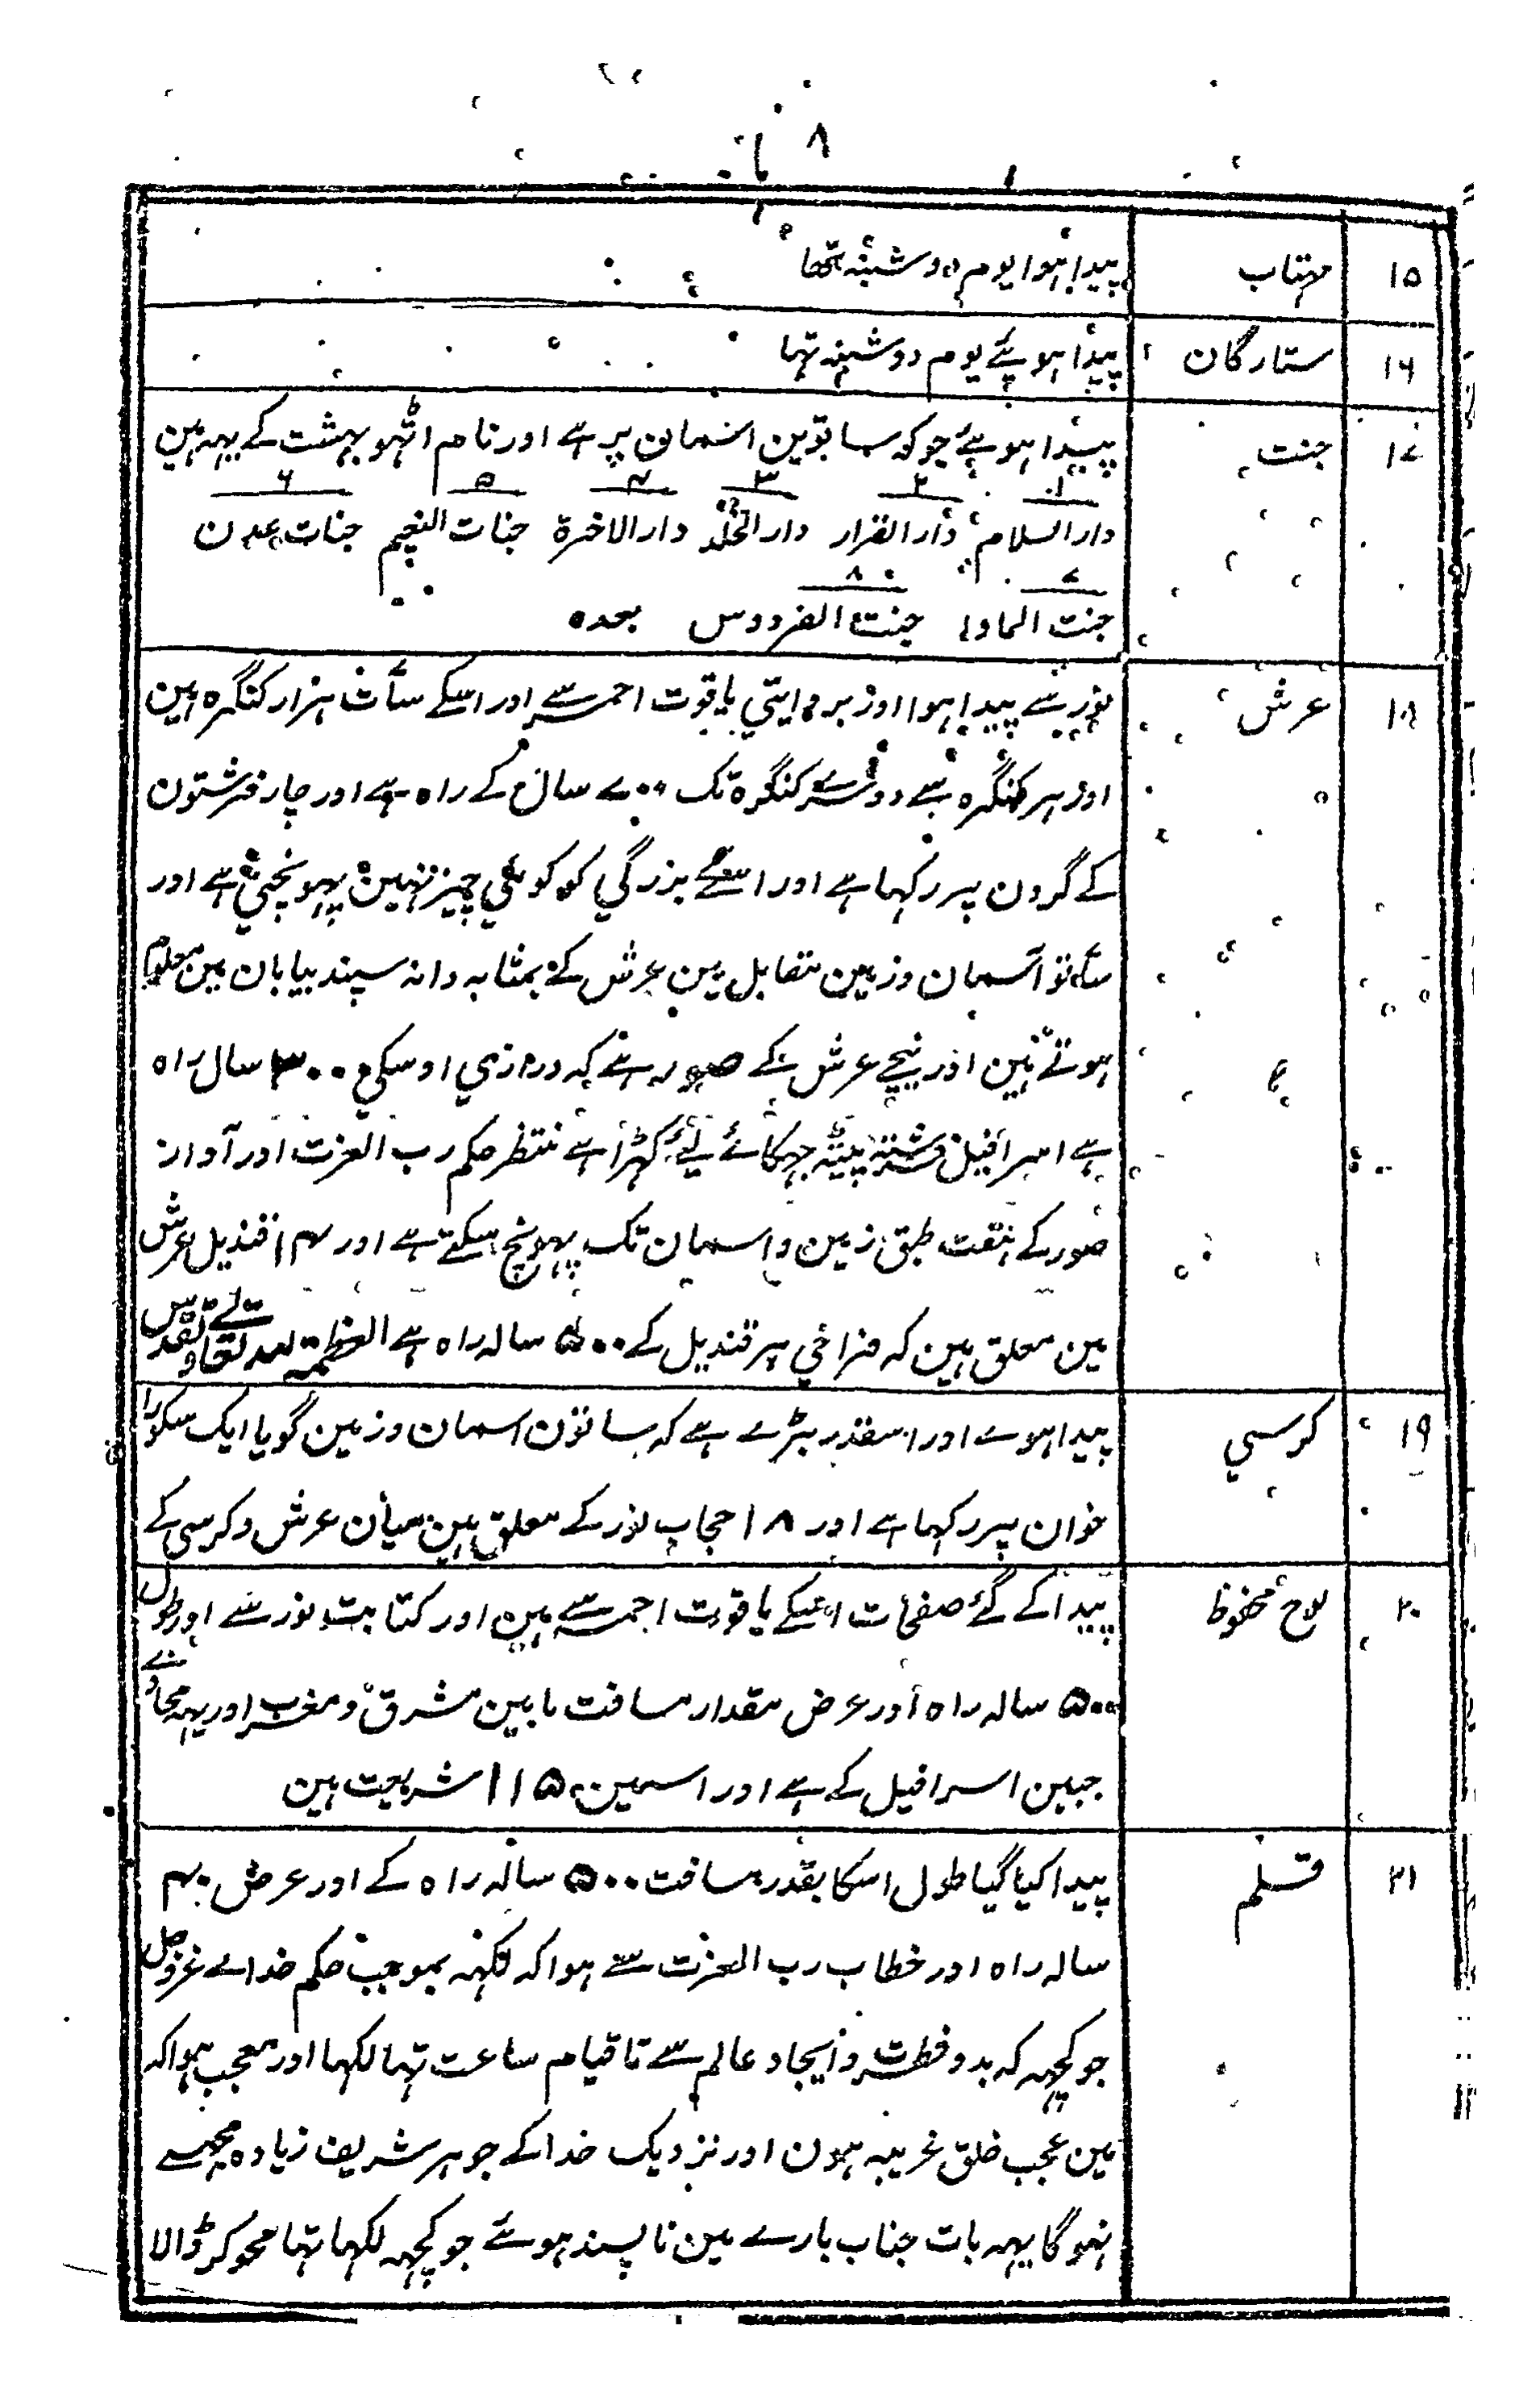 ۸
۱۵ مہتاب پیدا ہوا یوم دوشنبہ تھا
۱۶ ستارگان پیدا ہوئے یوم دوشنبہ تہا
۱۷ جنت پیدا ہوئے جو کہ ساتوین اسمان پر ہے اور نام اٹہو بہشت کے یہہ ہین
۱ ۲ ۳ ۴ ۵ ۶
دار السلام دار القرار دار الخلد دار الاخرۃ جنات النعیم جنات عدن
۷ ۸
جنت الماوا جنت الفردوس بعدہ
۱۸ عرش نور سے پیدا ہوا اور بروایتی یاقوت احمر سے اور اسکے سات ہزار کنگرہ ہین
اور ہر کنگرہ سے دوسرے کنگرہ تک ۷۰۰ سال کے راہ ہے اور چار فرشتون
کے گردن پر رکہا ہے اور اسکے بزرگي کو کوئي چیز نہین پہونچتي ہے اور
ساتو آسمان و زمین مقابل مین عرش کے بمثابہ دانہ سپند بیابان مین معلوم
ہوتے ہین اور نیچے عرش کے صور ہے کہ درازي اوسکي ۳۰۰ سال راہ
ہے اسرافیل فرشتہ پیٹہ جہکائے لیے کہڑا ہے منتظر حکم رب العزت اور آواز
صور کے ہفت طبق زمین و اسمان تک پہونچ سکتے ہے اور قندیل عرش
مین معلق ہین کہ فراخي ہر قندیل کے ۵۰۰ سالہ راہ ہے العظمۃ للہ تعالے و تقدس
۱۹ کرسي پیدا ہوے اور اسقدر بڑے ہے کہ ساتون اسمان و زمین گویا ایک سکورا
خوان پر رکہا ہے اور ۱۸ حجاب نور کے معلق ہین میان عرش و کرسی کے
۲۰ لوح محفوظ پیدا کے گئے صفحات اسکے یاقوت احمر سے ہین اور کتابت نور سے اور طول
۵۰۰ سالہ راہ اور عرض مقدار مسافت مابین مشرق و مغرب اور یہہ محاذے
جبین اسرافیل کے ہے اور اسمین ۱۱۵ شریعت ہین
۲۱ قلم پیدا کیا گیا طول اسکا بقدر مسافت ۵۰۰ سالہ راہ کے اور عرض ۴۰
سالہ راہ اور خطاب رب العزت سے ہوا کہ لکہہ بموجب حکم خداے عزوجل
جو کچہہ کہ بدو فطرت و ایجاد عالم سے تا قیام ساعت تہا لکہا اور معجب ہوا کہ
مین عجب خلق غریبہ ہون اور نزدیک خدا کے جوہر شریف زیادہ مجہسے
نہو گا یہہ بات جناب بارے مین ناپسند ہوئے جو کچہہ لکہا تہا محو کر ڈالا